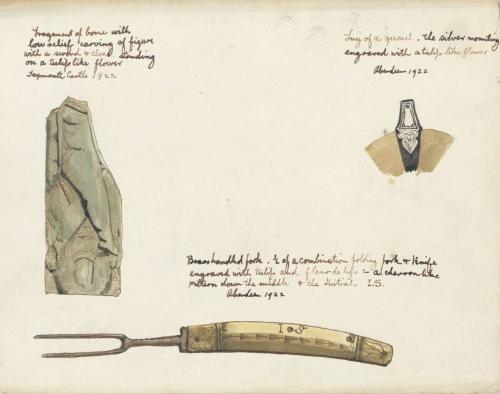 Fragement of bone with
low relief carving of figure
with a sword & cloak standing
on a tulip like flower
Taymouth Castle 1922
Lug of a quaich. the silver mounting
engraved with a tulip like flower
Aberdeen 1922
Brass handled fork. ½ of a combination folding fork & knife
engraved with tulip and fleur de lips - a chevron like
pattern down the middle & the Initials I.S.
Aberdeen 1922
I S